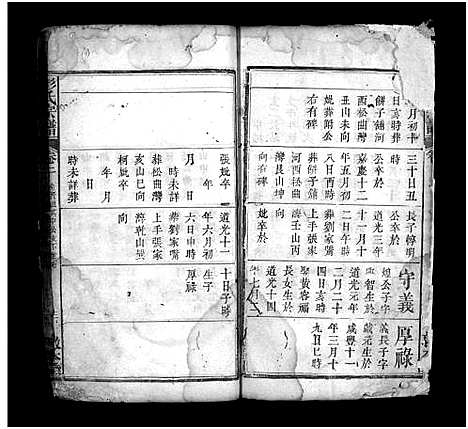 月初十
日亥時葬
餅子舖河
西松曲灣
丑山未向
妣葬附公
右有碑
三十日丑
時
公卒於
嘉慶十二
年五月初
八日酉時
葬餅子舖
河西松曲
灣艮山坤
向有碑
長子梓明
公卒於
道光三年
十一月十
二日午時
葬劉家嘴
上手張家
灣壬山丙
向
妣卒於
守義
智生於
道光元年
二月二十
四日亥時
娶黃容福
長女生於
道光十四
年七月
厚祿
義長子字
藏元生於
咸豐十一
年三月十
九日巳時
張妣卒
年
月
日
時未詳葬
松曲灣
亥山巳向
柯妣卒
年月
日
時未詳葬
道光十一
年六月初
六日申時
葬劉家嘴
上手張家
灣乾山巽
向
生子
厚祿
十日子時